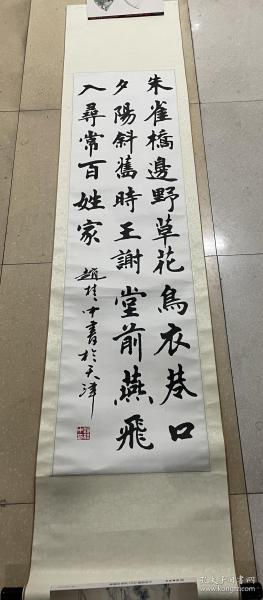 朱雀橋邊野草花烏衣巷口
夕陽斜舊時王謝堂前燕飛
入尋常百姓家
趙桂中書於天津
孔夫子旧书网